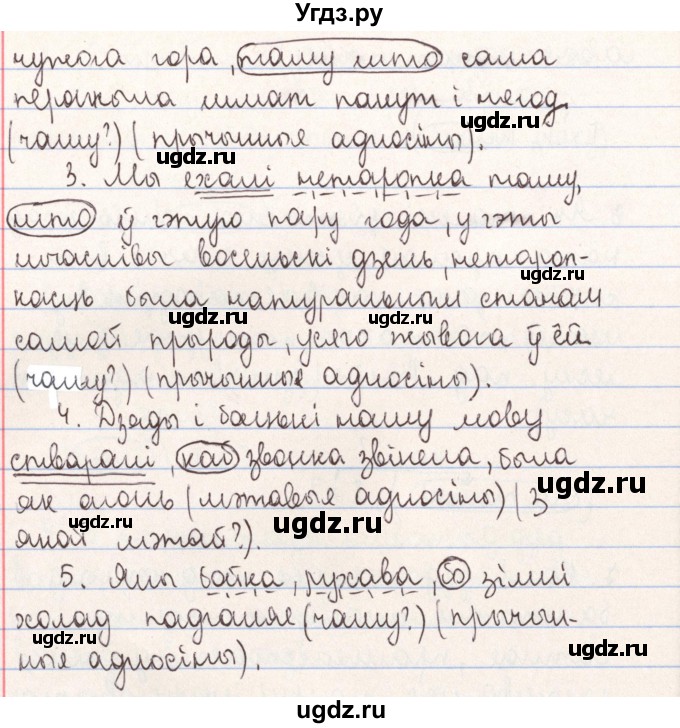 Угдз.ру
чужога гора, таму што сама
перажыла шмат пакут і нягод
(чаму?) (прычынныя адносіны).
ugdz.ru ugdz.ru
3. Мы ехалі нетаропка таму,
што ў гэтую пару года, у гэты
шчаслівы восеньскі дзень, нетароп-
ugdz.ru
касць была натуральным станам
ugdz.ru
самой прыроды, усяго жывога ў ёй
(чаму?) (прычынныя адносіны).
ugdz.ru
4. Дзяды і бацькі нашу мову
стваралі, каб звонка звінела, была
ugdz.ru
як агонь (мэтавыя адносіны) (З
ugdz.ru ugdz.ru
якой мэтай?).
5. Яны бойка, рухава, бо зімні
ugdz.ru
холад падганяе (чаму?) (прычын-
ugdz.ru ugdz.ru
ныя адносіны).
Угдз.ру